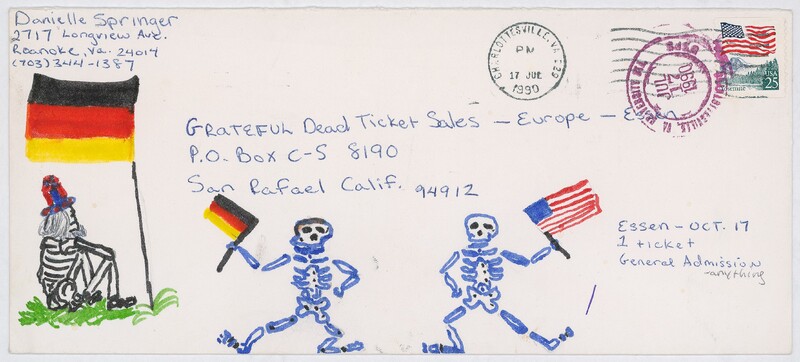 Danielle Springer
2717 Longview Ave.
Roanoke, Va. 24014
(703) 344-1387
CHARLOTTESVILLE, VA 229
PM
17 JUL
1990
USPS
JUL
17
1990
CHARLOTTESVILLE, VA
UNIVERSITY
USA
25
GRATEFUL Dead Ticket Sales - Europe - Essen
P.O. Box C-S 8190
San Rafael Calif. 94912
Essen - OCT. 17
1 ticket
General Admission
-anything